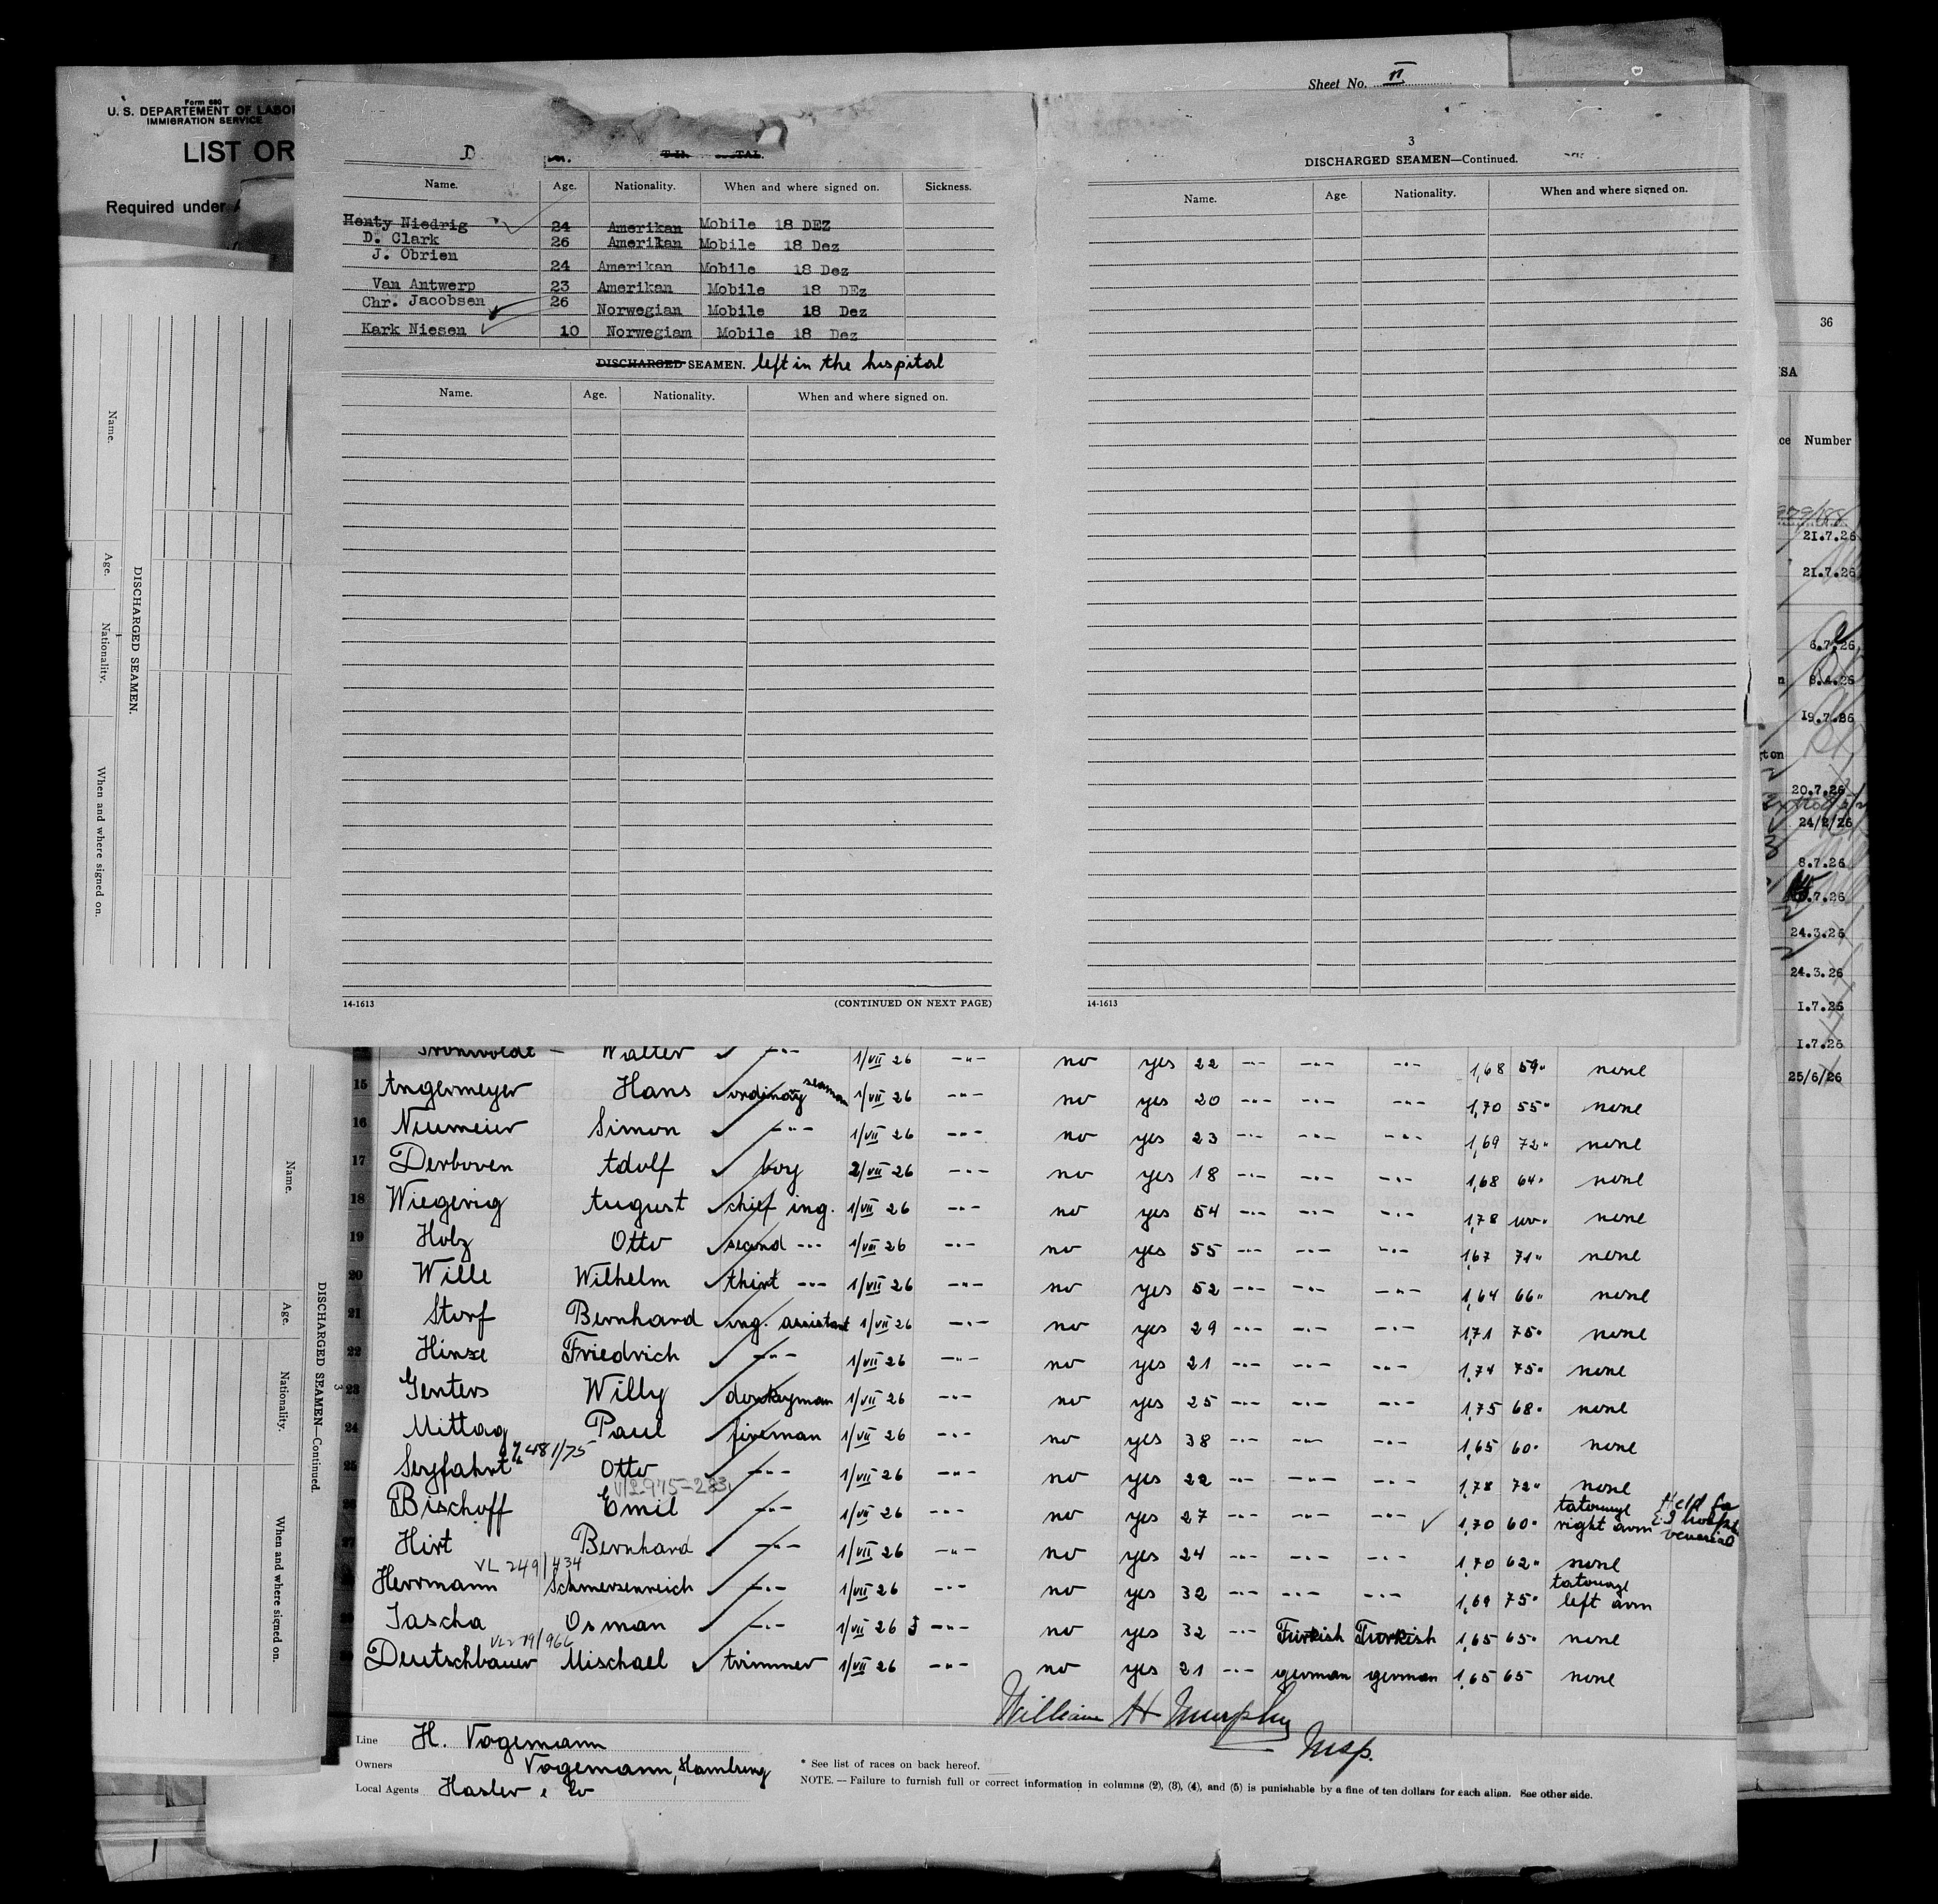 Sheet No. II
Form 680
U. S. DEPARTEMENT OF LABOR
IMMIGRATION SERVICE
LIST OR
Required under
Name. Age. Nationality. When and where signed on. Sickness.
Henty Niedrig 24 Amerikan Mobile 18 DEZ
D. Clark 26 Amerikan Mobile 18 Dez
J. Obrien 24 Amerikan Mobile 18 Dez
Van Antwerp 23 Amerikan Mobile 18 DEz
Chr. Jacobsen 26 Norwegian Mobile 18 Dez
Kark Niesen 10 Norwegiam Mobile 18 Dez
DISCHARGED SEAMEN. left in the hospital
Name. Age. Nationality. When and where signed on.
14-1613 (CONTINUED ON NEXT PAGE)
3
DISCHARGED SEAMEN—Continued.
Name. Age. Nationality. When and where signed on.
14-1613
DISCHARGED SEAMEN.
Name. Age. Nationality. When and where signed on.
3
DISCHARGED SEAMEN—Continued.
Name. Age. Nationality. When and where signed on.
36
Number
21.7.26
21.7.26
6.7.26
8.4.26
19.7.26
20.7.26
24/2/26
8.7.26
24.3.26
24.3.26
1.7.26
1.7.26
25/6/26
Walter -"- 1/VII 26 -"- no yes 22 -"- -"- -"- 1,68 59" none
15 Angermeyer Hans ordinary seaman 1/VII 26 -"- no yes 20 -"- -"- -"- 1,70 55" none
16 Neumeier Simon -"- 1/VII 26 -"- no yes 23 -"- -"- -"- 1,69 72" none
17 Derboven Adolf boy 2/VII 26 -"- no yes 18 -"- -"- -"- 1,68 64" none
18 Wiegerig August chief ing. 1/VII 26 -"- no yes 54 -"- -"- -"- 1,78 none
19 Holz Otto second -"- 1/VII 26 -"- no yes 55 -"- -"- -"- 1,67 71" none
20 Wille Wilhelm thirt -"- 1/VII 26 -"- no yes 52 -"- -"- -"- 1,64 66" none
21 Storf Bernhard ing. assistant 1/VII 26 -"- no yes 29 -"- -"- -"- 1,71 75" none
22 Hinze Friedrich -"- 1/VII 26 -"- no yes 21 -"- -"- -"- 1,74 75" none
23 Genters Willy donkeyman 1/VII 26 -"- no yes 25 -"- -"- -"- 1,75 68" none
24 Mittag Paul fireman 1/VII 26 -"- no yes 38 -"- -"- -"- 1,65 60" none
25 Seyfahrt Otto -"- 1/VII 26 -"- no yes 22 -"- -"- -"- 1,78 72" none
26 Bischoff Emil -"- 1/VII 26 -"- no yes 27 -"- -"- -"- 1,70 60" tatouage right arm Held for
27 Hirt Bernhard -"- 1/VII 26 -"- no yes 24 -"- -"- -"- 1,70 62" none
VL 249/434
Herrmann Schmerzenreich -"- 1/VII 26 -"- no yes 32 -"- -"- -"- 1,69 75" tatouage left arm
Jascha Osman -"- 1/VII 26 -"- no yes 32 -"- Turkish Turkish 1,65 65" none
Deutschbauer Mischael trimmer 1/VII 26 -"- no yes 21 -"- german german 1,65 65 none
William H Murphy
Insp.
Line H. Vogemann
Owners Vogemann, Hamburg
Local Agents Hasler & Co
* See list of races on back hereof.
NOTE. — Failure to furnish full or correct information in columns (2), (3), (4), and (5) is punishable by a fine of ten dollars for each alien. See other side.